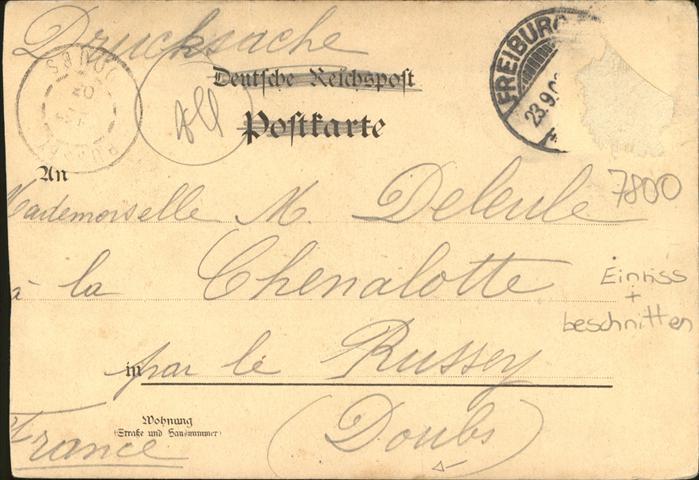 Drucksache
Deutsche Reichspost
Postkarte
FREIBURG
23.9.0
DOUBS
An
Mademoiselle M. Deleule
7800
à la Chenalotte
Einriss
+
beschnitten
in par le Russey
Wohnung
(Straße und Hausnummer)
(Doubs)
France